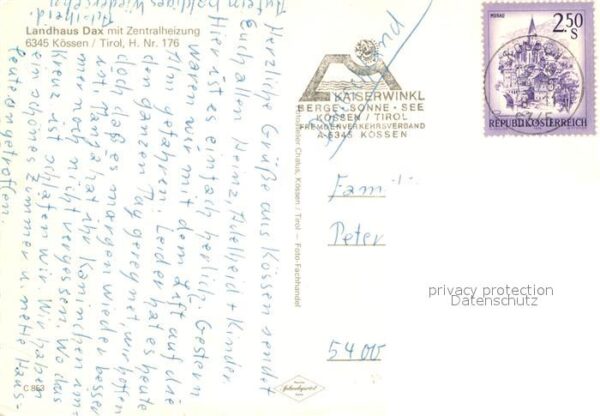 Landhaus Dax mit Zentralheizung
6345 Kössen / Tirol, H. Nr. 176
Herzliche Grüße aus Kössen sendet
Euch allen Heinz, Adelheid + Kinder
Hier ist es einfach herrlich. Gestern
waren wir mit dem Lift auf die
Alm gefahren. Leider hat es heute
den ganzen Tag geregnet, wir hoffen
doch daß es morgen wieder besser
ist. Tanja hat ihr Kaninchen im-
mer noch nicht vergessen. Wo das
Kreuz ist schlafen wir. Wir haben
ein schönes Zimmer u. nette Haus-
leute angetroffen.
Auf ein baldiges Wiedersehen
Adelheid
C 863
Chalus, Kössen / Tirol – Foto-Fachhandel
KAISERWINKL
BERGE · SONNE · SEE
KÖSSEN / TIROL
FREMDENVERKEHRSVERBAND
A-6345 KÖSSEN
MURAU
2.50
S
REPUBLIK ÖSTERREICH
Fam
Peter
5400
privacy protection
Datenschutz